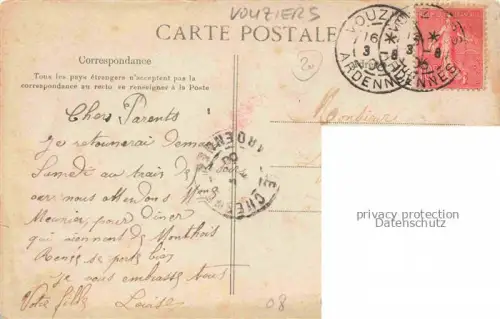 VOUZIERS
CARTE POSTALE
Correspondance
Tous les pays étrangers n'acceptent pas la
correspondance au recto se renseigner à la Poste
Chers Parents
Je retournerai demain
Samedi au train de
car nous attendons Mons
Meunier, pour dîner
qui viennent de Monthois
Renée se porte bien
je vous embrasse tous
Votre fille Louise
Monsieur
VOUZIERS
16 * 12
3 - 8
ARDENNES
ARDENNES
20
08
privacy protection
Datenschutz